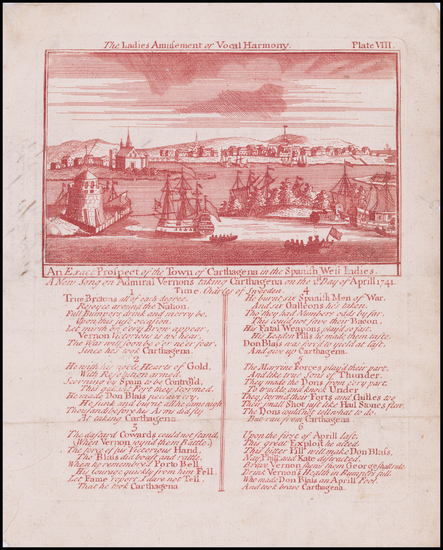 The Ladies Amusement or Vocal Harmony. Plate VIII.
An Exact Prospect of the Town of Carthagena in the Spanish West Indies.
A New Song on Admiral Vernons taking Carthagena on the 1st Day of April 1741.
Tune Charles of Sweden
1
True Britons all of each degree
Rejoyce around the Nation
Full Bumpers drink and merry be
Upon this just occasion
Let mirth on ev'ry Brow appear
Vernon Victorious is we hear
The War will soon be o'er ne'er fear
Since he's took Carthagena.
2
He with his noble Hearts of Gold,
With Resolution armed
Scorning by Spain to be Controlld,
This galla Fort they stormed
He made Don Blass run away
He sunk and burnt all he came nigh
Thousands before his Arms did fly
At taking Carthagena
3
The dastard Cowards could not stand,
(When Vernon round them Rattled)
The force of his Victorious Hand,
Tho Blass did brag and rattle,
When he remembred Porto Bell
His Courage quickly from him Fell
Let Fame report I dare not Tell
That he took Carthagena
4
He burnt six Spanish Men of War.
And six Galleons he's taken,
Tho they had Numbers éds by far
This could not save their Bacon.
His Fatal Weapons play'd so fast,
His Leaden Pills he made them taste
Don Blass was forc'd to yield at last,
And give up Carthagena.
5
The Marrine Forces play'd their part,
And like true Sons of Thunder
They made the Dons from ev'ry part,
To truckle and knock Under
They storm'd their Forts and Castles too
Their small Shot just like Hail Stones flew
The Dons could not tell what to do
But ran from Carthagena
6
Upon the first of April last,
This great Exploit he acted
This bitter Pill will make Don Blass,
Nay Phill and Kate distracted,
Brave Vernon shows them George shall rule
Drink Vernon's Health in Bumpers full
Who made Don Blass an April Fool,
And took brave Carthagena.